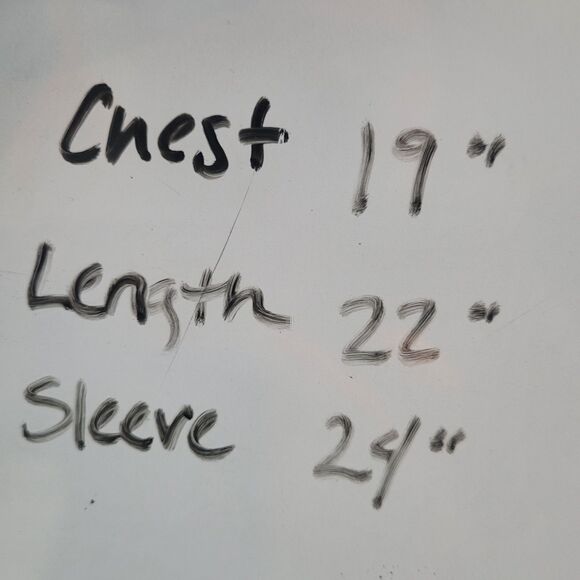 Chest 19"
Length 22"
Sleeve 24"